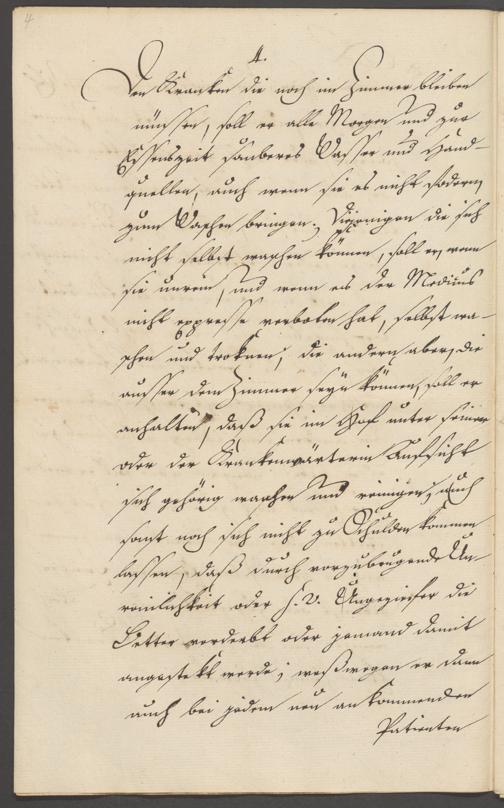 4
4.
Den Kranken die noch im Zimmer bleiben
müssen, soll er alle Morgen und zur
Essenszeit sauberes Wasser und Hand-
quellen, auch wenn sie es nicht fodern,
zum Waschen bringen. Diejenigen die sich
nicht selbst waschen können, soll er, wenn
sie unrein, und wenn es der Medicus
nicht expresse verboten hat, selbst wa-
schen und troknen, die andern aber, die
ausser dem Zimmer seyn können, soll er
anhalten, daß sie im Hof unter seiner
oder der Krankenwärterin Aufsicht
sich gehörig waschen und reinigen, auch
sonst noch sich nicht zu Schulden kommen
lassen, daß durch vorzubeugende Un-
reinlichkeit oder s. v. Ungeziefer die
Better verderbt oder jemand damit
angestekt werde; weßwegen er dann
auch bei jedem neu ankommenden
Patienten